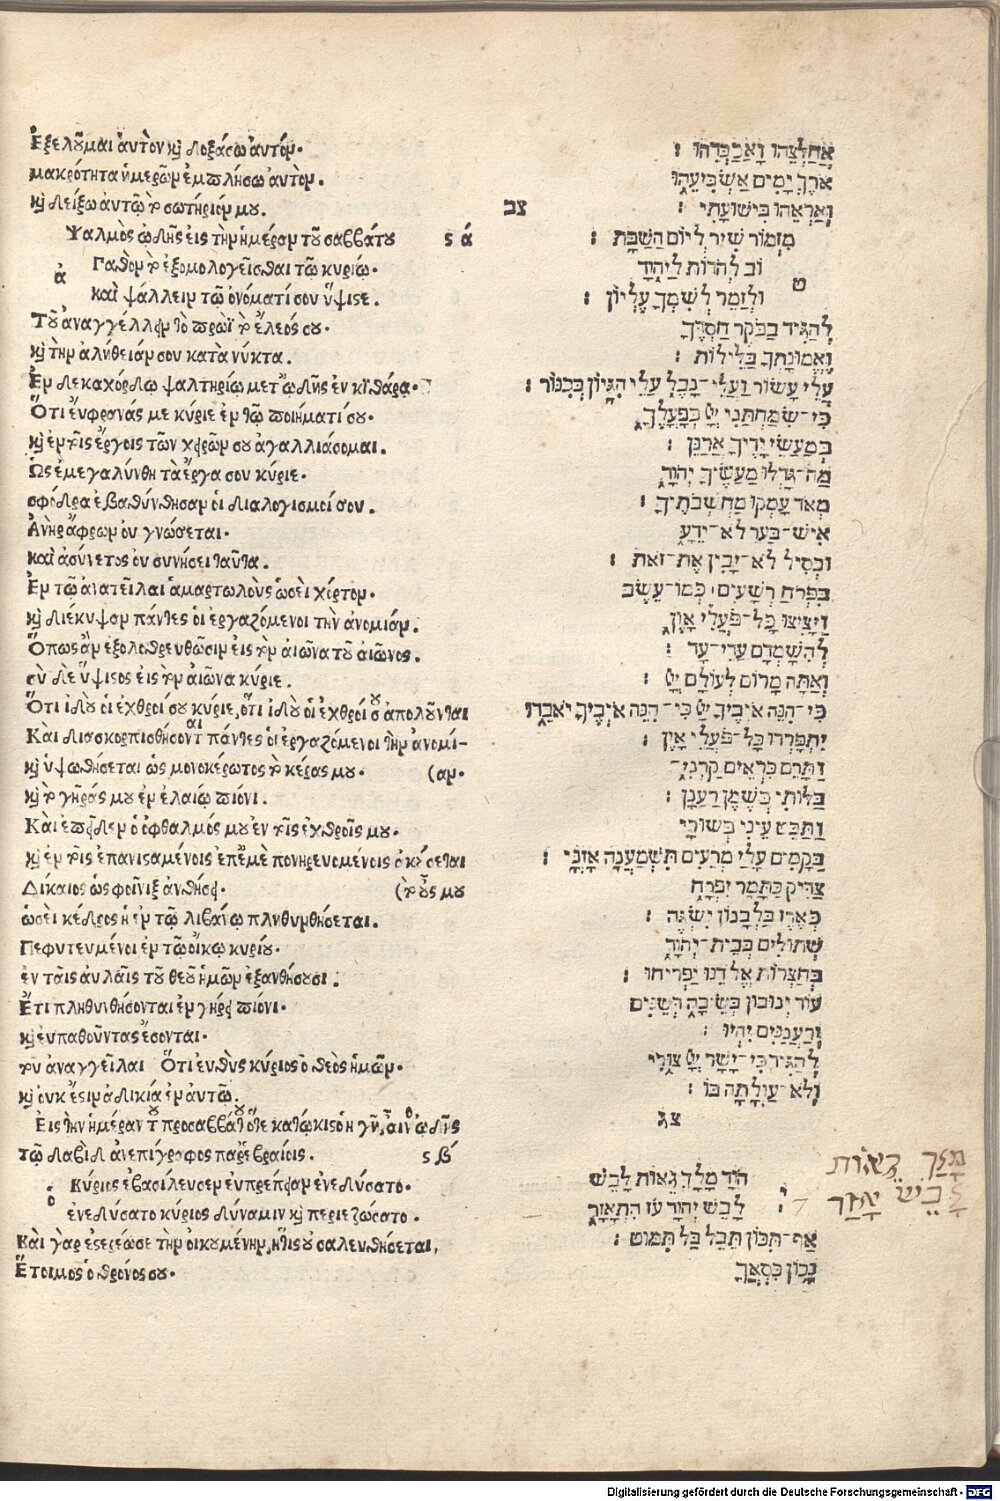 Ἐξελοῦμαι ἀυτὸν κὶ δοξάσω ἀυτόν.
μακρότητα ἡμερῶν ἐμπλήσω ἀυτὸν.
κὶ δείξω ἀυτῷ τὸ σωτηρίον μου.
Ψαλμὸς ᾠδῆς εἰς τὴν ἡμέραν τοῦ σαββάτου ϛ ά
ἀ Γαθὸν τὸ ἐξομολογεῖσθαι τῶ κυρίω.
καὶ ψάλλειν τῶ ὀνόματί σου ὕψιστε.
Τοῦ ἀναγγέλλειν τὸ πρωῒ τὸ ἔλεός σου.
κὶ τὴν ἀλήθειάν σου κατὰ νύκτα.
Ἐν δεκαχόρδω ψαλτηρίω μετ ὠδῆς ἐν κιθάρα.
Ὅτι ἐύφρανάς με κύριε ἐν τῷ ποιηματί σου.
κὶ ἐν τοῖς ἔργοις τῶν χειρῶν σου ἀγαλλιάσομαι.
Ὡς ἐμεγαλύνθη τὰ ἔργα σου κύριε.
σφόδρα ἐβαθύνθησαν οἱ διαλογισμοί σου.
Ἀνὴρ ἄφρων ὀυ γνώσεται.
καὶ ἀσύνετος ὀυ συνήσει ταῦτα.
Ἐν τῶ ἀνατεῖλαι ἁμαρτωλοὺς ὡσεὶ χόρτον.
κὶ διέκυψον πάντες ὁι ἐργαζόμενοι τὴν ἀνομιάν.
Ὅπως ἂν ἐξολοθρευθῶσιν εἰς τὸν αἰῶνα τοῦ αἰῶνος.
σὺ δὲ ὕψιστος εἰς τὸν αἰῶνα κύριε.
Ὅτι ἰδοὺ ὁι ἐχθροί σου κύριε, ὅτι ἰδοὺ ὁι ἐχθροί σου ἀπολοῦνται
Καὶ διασκορπισθήσονται πάντες ὁι ἐργαζόμενοι τὴν ἀνομί-
κὶ ὑψωθήσεται ὡς μονοκέρωτος τὸ κέρας μου. (αν.
κὶ τὸ γῆράς μου ἐν ἐλαιῴ πιόνι.
Καὶ ἐπεῖδεν ὁ ὀφθαλμός μου ἐν τοῖς ἐχθροῖς μου.
κὶ ἐν τοῖς ἐπανισταμένοις ἐπ ἐμὲ πονηρευομένοις ἀκούσεται
Δίκαιος ὡς φοῖνιξ ἀνθήσει. (τὸ οὖς μου
ὡσεὶ κέδρος ἡ ἐν τῷ λιβάνῳ πληθυνθήσεται.
Πεφυτευμένοι ἐν τῷ ὄικῳ κυρίου.
ἐν ταῖς ἀυλαῖς τοῦ θεοῦ ἡμῶν ἐξανθήσουσι.
Ἔτι πληθυνθήσονται ἐν γήρει πίονι.
κὶ ἐυπαθοῦντας ἔσονται.
τοῦ ἀναγγεῖλαι Ὅτι ἐυθὺς κύριος ὁ θεὸς ἡμῶν.
κὶ ὀυκ ἔστιν ἀδικία ἐν ἀυτῷ.
Εἰς τὴν ἡμέραν τοῦ προσαββάτου ὅτε κατῴκιστο ἡ γῆ, αἶνος ᾠδῆς
τῷ δαβὶδ ἀνεπίγραφος παρ ἑβραίοις. ϛ β
ὁ Κύριος ἐβασίλευσεν ἐυπρέπειαν ἐνεδύσατο.
ἐνεδύσατο κύριος δύναμιν κὶ περιεζώσατο.
Καὶ γὰρ ἐστερέωσε τὴν οἰκουμένην, ἥτις ὀυ σαλευθήσεται,
Ἕτοιμος ὁ θρόνος σου.
אֲחַלְּצֵהוּ וַאֲכַבְּדֵהוּ :
אֹרֶךְ יָמִים אַשְׂבִּיעֵהוּ
וְאַרְאֵהוּ בִּישׁוּעָתִי : צב
מִזְמוֹר שִׁיר לְיוֹם הַשַּׁבָּת :
ט וֹב לְהֹדוֹת לַיהוָֹה
וּלְזַמֵּר לְשִׁמְךָ עֶלְיוֹן :
לְהַגִּיד בַּבֹּקֶר חַסְדֶּךָ
וֶאֱמוּנָתְךָ בַּלֵּילוֹת :
עֲלֵי עָשׂוֹר וַעֲלֵי־נָבֶל עֲלֵי הִגָּיוֹן בְּכִנּוֹר :
כִּי־שִׂמַּחְתַּנִי יְיָ בְּפָעֳלֶךָ
בְּמַעֲשֵׂי יָדֶיךָ אֲרַנֵּן :
מַה־גָּדְלוּ מַעֲשֶׂיךָ יְהוָֹה
מְאֹד עָמְקוּ מַחְשְׁבֹתֶיךָ :
אִישׁ־בַּעַר לֹא־יֵדָע
וּכְסִיל לֹא־יָבִין אֶת־זֹאת :
בִּפְרֹחַ רְשָׁעִים כְּמוֹ־עֵשֶׂב
וַיָּצִיצוּ כָּל־פֹּעֲלֵי אָוֶן
לְהִשָּׁמְדָם עֲדֵי־עַד :
וְאַתָּה מָרוֹם לְעוֹלָם יְיָ :
כִּי־הִנֵּה אֹיְבֶיךָ יְיָ כִּי־הִנֵּה אֹיְבֶיךָ יֹאבֵדוּ
יִתְפָּרְדוּ כָּל־פֹּעֲלֵי אָוֶן :
וַתָּרֶם כִּרְאֵים קַרְנִי־
בַּלּוֹתִי בְּשֶׁמֶן רַעֲנָן :
וַתַּבֵּט עֵינִי בְּשׁוּרָי
בַּקָּמִים עָלַי מְרֵעִים תִּשְׁמַעְנָה אָזְנָי :
צַדִּיק כַּתָּמָר יִפְרָח
כְּאֶרֶז בַּלְּבָנוֹן יִשְׂגֶּה :
שְׁתוּלִים בְּבֵית־יְהוָֹה
בְּחַצְרוֹת אֱלֹהֵינוּ יַפְרִיחוּ :
עוֹד יְנוּבוּן בְּשֵׂיבָה דְּשֵׁנִים
וְרַעֲנַנִּים יִהְיוּ :
לְהַגִּיד כִּי־יָשָׁר יְיָ צוּרִי
וְלֹא־עַוְלָתָה בּוֹ :
צג
י הֹוָה מָלָךְ גֵּאוּת לָבֵשׁ
לָבֵשׁ יְהוָֹה עֹז הִתְאַזָּר
אַף־תִּכּוֹן תֵּבֵל בַּל תִּמּוֹט :
נָכוֹן כִּסְאֲךָ
Digitalisierung gefördert durch die Deutsche Forschungsgemeinschaft - DFG